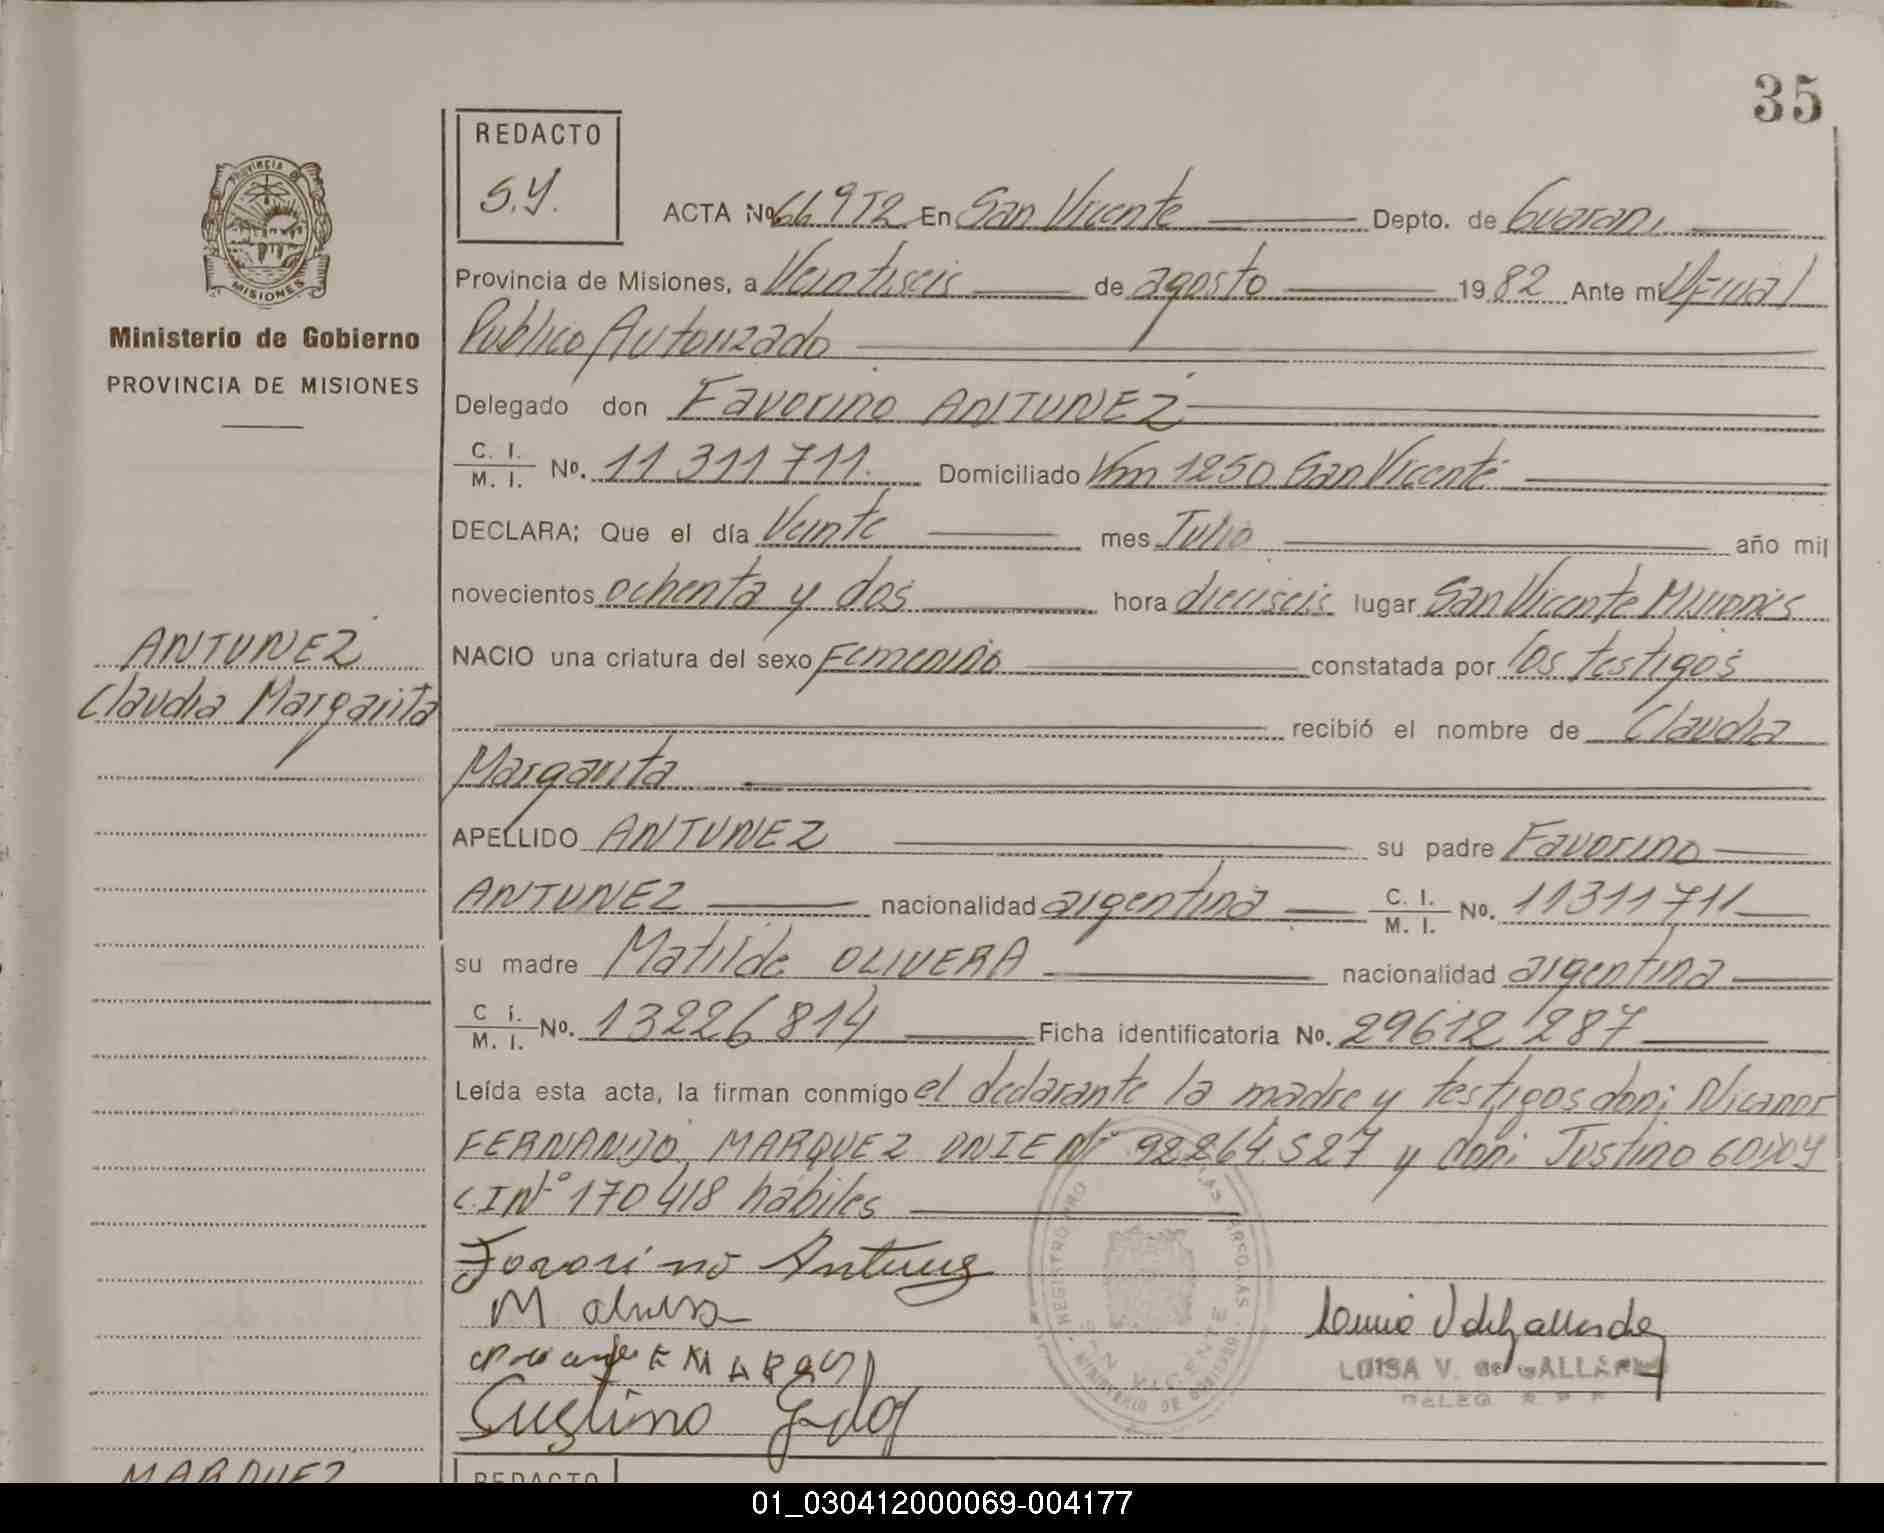 35
REDACTO
S.Y.
Provincia de
MISIONES
Ministerio de Gobierno
PROVINCIA DE MISIONES
ANTUNEZ
Claudia Margarita
ACTA Nº 66 972 En San Vicente Depto. de Guarani
Provincia de Misiones, a Veintiseis de agosto 1982 Ante mi Oficial
Publico Autorizado
Delegado don Favorino ANTUNEZ
C. I. / M. I. Nº. 11 311 711. Domiciliado Km 1250 San Vicente
DECLARA; Que el día Veinte mes Julio año mil
novecientos ochenta y dos hora dieciseis lugar San Vicente Misiones
NACIO una criatura del sexo Femenino constatada por los testigos
recibió el nombre de Claudia
Margarita
APELLIDO ANTUNEZ su padre Favorino
ANTUNEZ nacionalidad argentina C. I. / M. I. Nº. 11311711
su madre Matilde OLIVERA nacionalidad argentina
C. I. / M. I. Nº. 13226814 Ficha identificatoria Nº. 29612287
Leída esta acta, la firman conmigo el declarante la madre y testigos don; Nicanor
FERNANDO MARQUEZ DNIE Nº 92264.527 y don; Justino GODOY
C.I Nº 170418 hábiles
Favorino Antunez
M Olivera
LUISA V. de GALLARDO
DELEG. R P P
REGISTRO PRO
SAN VICENTE
MINISTERIO DE GOBIERNO
MARQUEZ
REDACTO
01_030412000069-004177